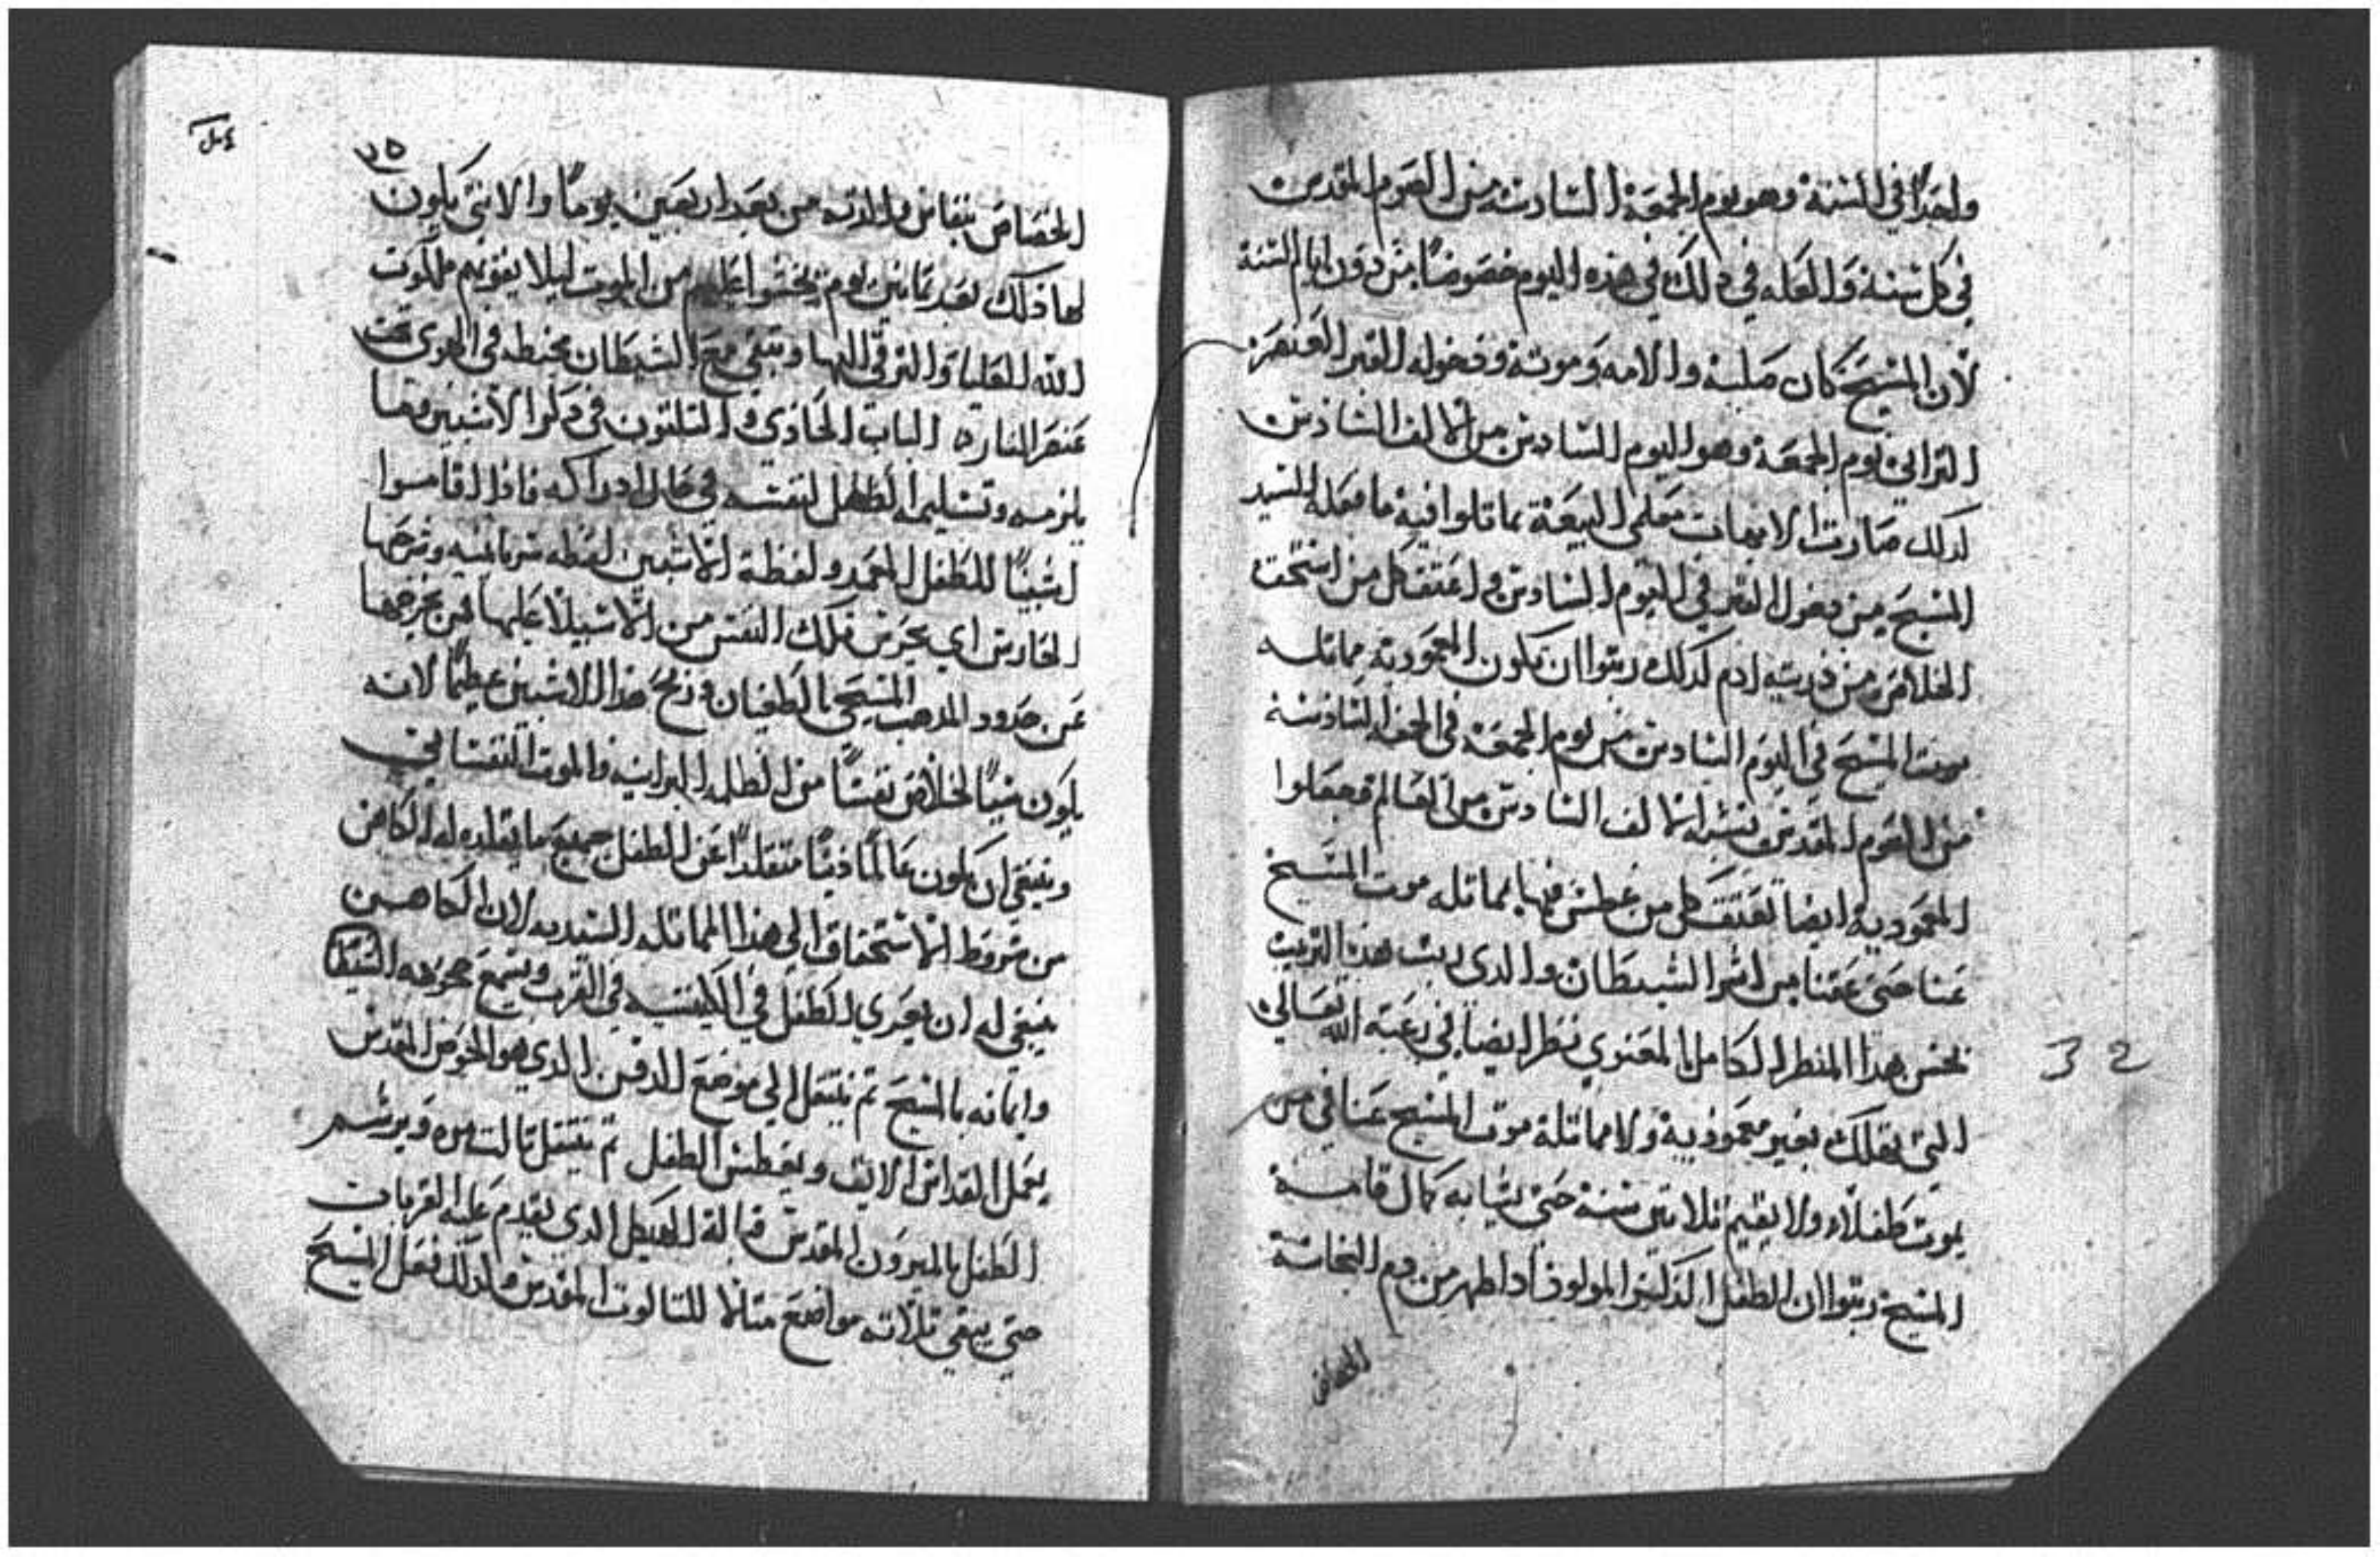 واحدًا في السنة وهو يوم الجمعة السادسة من الصوم المقدس
في كل سنة والعله في دلك في هذه اليوم خصوصًا من دون ايام السنة
لان المسيح كان صلبه والامه وموته ودخوله القبر
الترابي يوم الجمعة وهو اليوم السادس من الالف السادس
لدلك صارت الامهات معلمي البيعة مماتلوا فيه ما فعله السيد
المسيح من دخول القبر في اليوم السادس واعتق كل من استحق
الخلاص من درية ادم كدلك رتبوا ان تكون المعمودية مماتله
موت المسيح في اليوم السادس من يوم الجمعة في الجمعة السادسة
من الصوم المقدس الالف السادس من العالم فجعلوا
المعمودية ايضا تعتق كل من غطس فيها بمماتله موت المسيح
عنا حتى عتقنا من اسر الشيطان والدي رتب هذا الترتيب
تحسن بهدا المنظر الكامل بالمعنوي نظر ايضا في رغبة الله تعالى
التي بغير معمودية ولا مماتلة موت المسيح عنا في من
يموت طفلا ولا يقيم تلاتين سنة حتى يشابه كمال قامة
المسيح رتبوا ان الطفل الدكر المولود ادا طهر من دم النجاسة
٢٥
الخصاص بنفاس والدته من بعد اربعين يومًا والانتى يكون
لها دلك بعد تمانين يوم يخشوا عليهم من الموت ليلا يفوتهم ملكوت
الله العليا والترقي اليها وتبقى مع الشيطان مختبطه في الهوى تحت
عنصر النار ه الباب الحادي والتلتون في دكر الاشبين وما
يلزمه وتسليمه الطفل لنفسه في حال ادراكه فادا اقاموا
اشبينًا للطفل المعمد ولفظة الاشبين لفظه سريانيه وشرحها
الحارس اي يحرس تلك النفس من الاستيلا عليها فمن يخرجها
عن حدود المدهب المسيحي بالطغيان وربح هدا الاشبين عظيمًا لانه
يكون سببًا لخلاص نفسًا من الظلمه البرانيه والموت النفساني
وينبغي ان يكون عالمًا دينًا متقلدًا عن الطفل جميع ما يقلده له الكاهن
من شروط الاستحقاق الي هدا المماتله السيديه لان الكاهن
ينبغي له ان يعري الطفل في الكنيسه في الغرب ويسمع جحوده الشيطان
وايمانه بالمسيح تم ينتقل الى موضع الدفن الدي هو الحوض المقدس
يعمل القداس الايق ويغطس الطفل تم ينتقل تالت مره ويرشم
الطفل بالميرون المقدس قبالة الهيكل الدي يقدم عليه القربات
حتى يبقى تلاته مواضع متالا للتالوت المقدس ولدلك فعل المسيح